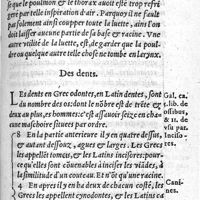 se que le poulmon & le thorax auoit esté trop refri
geré par telle inspiration d'air. Parquoy il ne faut
pas seulement ainsi coupper toute la luette, ains l'on
doit laisser aucune partie de sa base & racine. Vne
autre vtilité de la luette, est, de garder que la poul-
dre ou quelque autre telle chose ne tombe en larynx.
Des dents.
LEs dents en Grec odontes, en Latin dentes, sont
du nombre des os: dont le nõbre est de trẽte &
deux au plus, es hommes: c'est asauoir seize en cha-
que maschoire situees par ordre.
8 En la partie anterieure il y en a quatre dessus,
& autant dessouz, agues & larges. Les Grecs
les appellent tomeis, & les Latins incisores: pour-
ce qu'elles sont tranchantes à inciser les viãdes, à
la similitude d'vn couteau. Et n'õt qu'vne racine.
4 Apres il y en ha deux de chacun costé, les
Grecs les appellent cynodontes, & les Latins ca
Gal. ca.
5. lib. de
ossibus,
& 11. de
vsu par.
Incisoi-
res.
Cani-
nes.